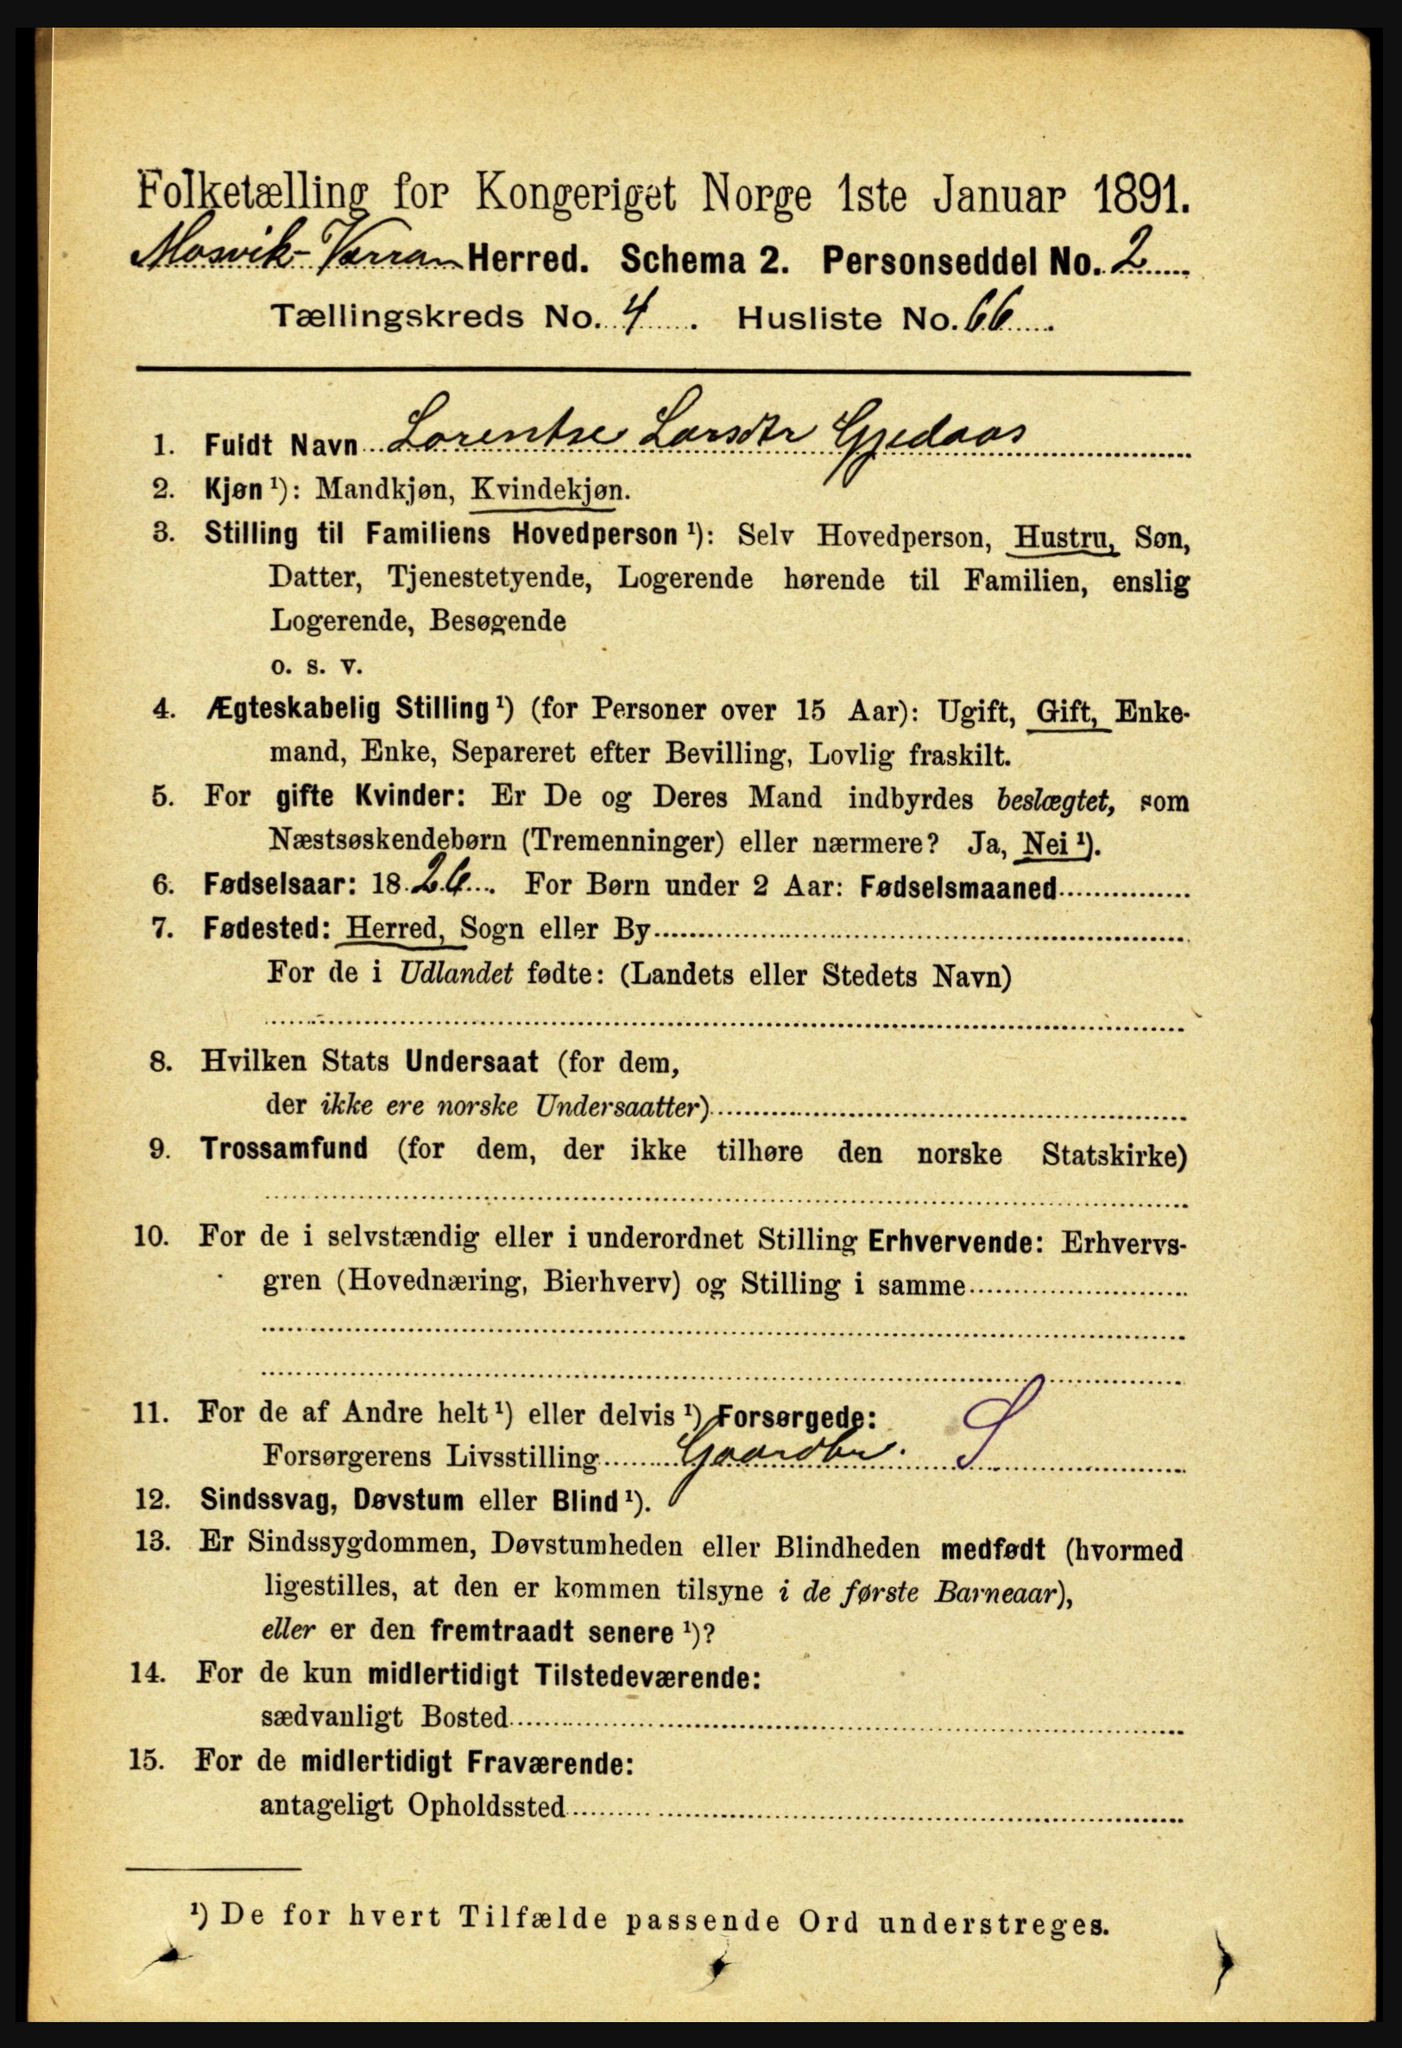 Folketælling for Kongeriget Norge 1ste Januar 1891.
Mosvik-Verran Herred. Schema 2. Personseddel No. 2
Tællingskreds No. 4. Husliste No. 66.
1. Fuldt Navn Lorentse Larsdtr Gjedaas
2. Kjøn ¹): Mandkjøn, Kvindekjøn.
3. Stilling til Familiens Hovedperson ¹): Selv Hovedperson, Hustru, Søn,
Datter, Tjenestetyende, Logerende hørende til Familien, enslig
Logerende, Besøgende
o. s. v.
4. Ægteskabelig Stilling ¹) (for Personer over 15 Aar): Ugift, Gift, Enke-
mand, Enke, Separeret efter Bevilling, Lovlig fraskilt.
5. For gifte Kvinder: Er De og Deres Mand indbyrdes beslægtet, som
Næstsøskendebørn (Tremenninger) eller nærmere? Ja, Nei ¹).
6. Fødselsaar: 1826. For Børn under 2 Aar: Fødselsmaaned
7. Fødested: Herred, Sogn eller By
For de i Udlandet fødte: (Landets eller Stedets Navn)
8. Hvilken Stats Undersaat (for dem,
der ikke ere norske Undersaatter)
9. Trossamfund (for dem, der ikke tilhøre den norske Statskirke)
10. For de i selvstændig eller i underordnet Stilling Erhvervende: Erhvervs-
gren (Hovednæring, Bierhverv) og Stilling i samme
11. For de af Andre helt ¹) eller delvis ¹) Forsørgede:
Forsørgerens Livsstilling Gaardbr. S
12. Sindssvag, Døvstum eller Blind ¹).
13. Er Sindssygdommen, Døvstumheden eller Blindheden medfødt (hvormed
ligestilles, at den er kommen tilsyne i de første Barneaar),
eller er den fremtraadt senere ¹)?
14. For de kun midlertidigt Tilstedeværende:
sædvanligt Bosted
15. For de midlertidigt Fraværende:
antageligt Opholdssted
¹) De for hvert Tilfælde passende Ord understreges.